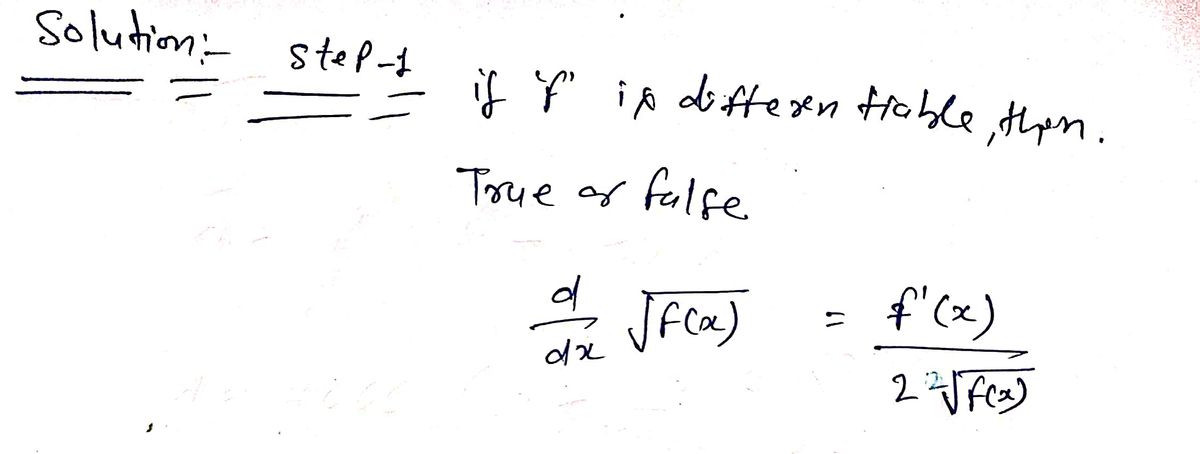 Solution:- Step-1 if 'f' is differentiable, then.
True or false
d/dx √f(x) = f'(x) / 2 ²√f(x)